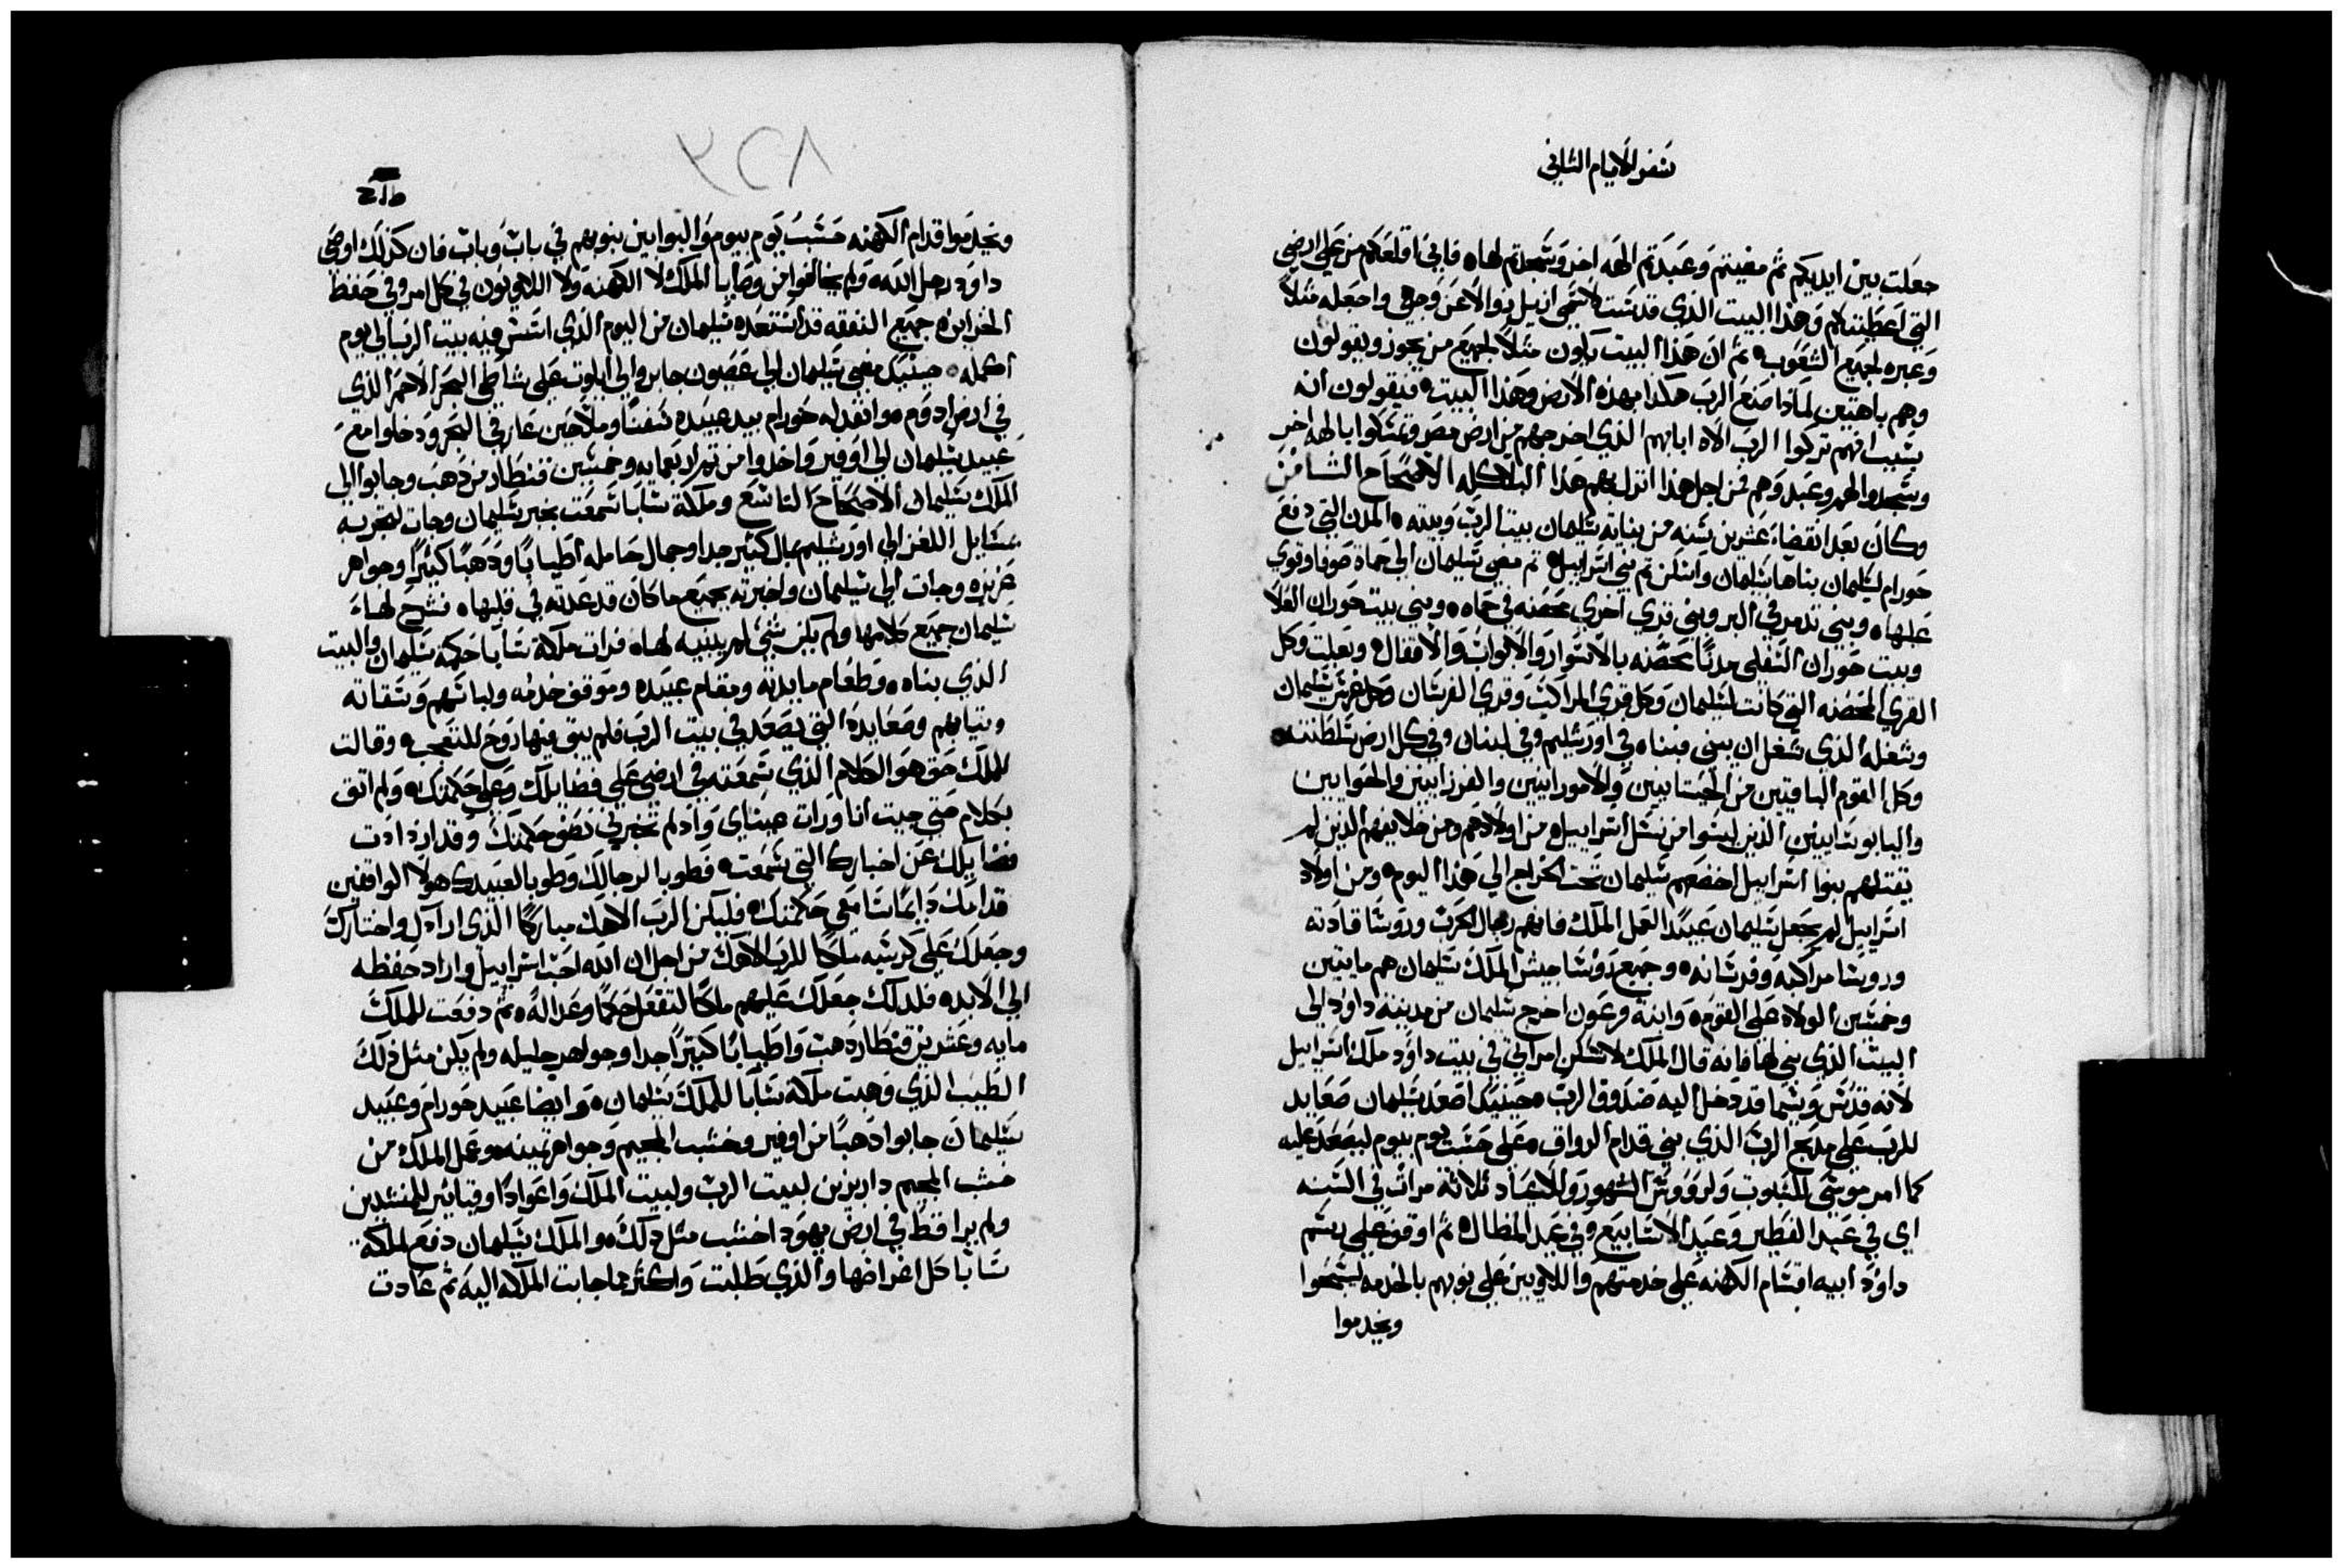 سفر الايام الثاني
جعلت بين ايديكم ثم مضيتم وعبدتم الهه اخر وسجدتم لها ه فاني اقلعكم من على ارضي
التي اعطيتكم وهذا البيت الذي قدست لاسمي ازيل بوالاعن وجهي واجعله مثلاً
وعبره لجميع الشعوب ه ثم ان هذا البيت يكون مثلاً لجميع من يجوز ويقولون
وهم باهتين لماذا صنع الرب هكذا بهذه الارض وهذا البيت ه فيقولون انه
بسبب انهم تركوا الرب الاه ابايهم الذي اخرجهم من ارض مصر وتمسكوا بالهه اخر
وسجدوا لهم وعبدوهم فمن اجل هذا انزل بهم هذا البلا كله الاصحاح الثامن
وكان بعد انقضاء عشرين سنه من بنايه سليمان بيت الرب وبيته ه المدن التي دفع
حورام لسليمان بناها سليمان واسكن تم بني اسراييل ه ثم مضى سليمان الى حماة صوفا وقوي
عليها ه وبنى تدمر في البر وبنى قري اخري محصنه في حماه ه وبنى بيت حوران العلا
وبيت حوران السفلى مدنًا محصنه بالاسوار والابواب والاقفال ه وبعلت وكل
القري المحصنه التي كانت لسليمان وكل قري المراكب وقري الفرسان وكل سليمان
وشغله الذي شغل ان يبنى فبناه في اورشليم وفي لبنان وفي كل ارض سلطنته ه
وكل القوم الباقيين من الحيتانيين والامورانيين والفرزانيين والحوايين
واليابوسانيين الذين ليسوا من نسل اسراييل ه من اولادهم ومن خلايفهم الذين لم
يقتلهم بنوا اسراييل اخضعهم سليمان تحت الخراج الى هذا اليوم ه ومن اولاد
اسراييل لم يجعل سليمان عبيدًا لعمل الملك فانهم رجال الحرب وروسا قادته
وروسا مراكبه وفرسانه ه وجميع روسا جيش الملك سليمان هم مايتين
وخمسين الولاه على القوم ه وابنة فرعون اخرج سليمان من مدينه داود الى
البيت الذي بنى لها فانه قال الملك لا تسكن امراتي في بيت داود ملك اسراييل
لانه قدس وسيما قد دخل اليه صندوق الرب ه حينيذ اصعد سليمان صعايد
للرب على مذبح الرب الذي بنى قدام الرواق ه على حسب يوم بيوم ليصعد عليه
كما امر موسى للسبوت ولروس الشهور وللاعياد ثلاثة مرات في السنه
اي في عيد الفطير وعيد الاسابيع وفي عيد المظال ه ثم اوقف على رسم
داود ابيه اقسام الكهنه على خدمتهم واللاويين على نوبهم بالخدمه ليسبحوا
ويخدموا
٢٥٨
ويخدموا قدام الكهنه حسب يوم بيوم والبوابين بنوبهم في باب وباب فان كذلك اوصى
داود رجل الله ه ولم يخالفوا من وصايا الملك لا الكهنه ولا اللاويون في كل امر وفي حفظ
الخزاين ه جميع النفقه قد استعده سليمان من اليوم الذي اسس فيه بيت الرب الى يوم
اكمله ه حينيذ مضى سليمان الى عصون جابر والى ايلوت على شاطي البحر الاحمر الذي
في ارض ادوم ه وانفد له حورام بيد عبيده سفنًا وملاحين عارفي البحر ودخلوا مع
عبيد سليمان الى اوفير واخدوا من تم اربعمايه وخمسين قنطار من ذهب وجابوا الى
الملك سليمان الاصحاح التاسع وملكة سابا سمعت بخبر سليمان وجات لتجربه
بمسايل اللغز الى اورشليم بمال كثير جدا وجمال حامله اطيابًا وذهبًا كثيرًا وجواهر
عزيزه وجات الى سليمان واخبرته بجميع ما كان قد عدته في قلبها ه فشرح لها
سليمان جميع كلامها ولم يكن شي لم يبينه لها ه فرات ملكة سابا حكمة سليمان والبيت
الذي بناه ه وطعام مايدته ومقام عبيده وموقف خدمه ولباسهم وسقاته
وتيابهم وصعايده التي يصعد في بيت الرب فلم يبق فيها روح للتعجب ه وقالت
للملك حق هو الكلام الذي سمعته في ارضي على فضايلك وعلى حكمتك ه ولم اثق
بكلام حتى جيت انا ورات عيناي واذ لم تخبرني نصف حكمتك وقد ازدادت
فضايلك عن اخبارك التي سمعت ه فطوبا لرجالك وطوبا لعبيدك هولا الواقفين
قدامك دايمًا سامعي حكمتك ه فليكن الرب الاهك مباركًا الذي ارادك واختارك
وجعلك على كرسيه ملكًا للرب الاهك من اجل ان الله احب اسراييل واراد حفظه
الى الابد ه فلذلك جعلك عليهم ملكًا لتفعل حكمًا وعدالة ه ثم دفعت للملك
مايه وعشرين قنطار ذهب واطيابًا كثيرًا جدا وجواهر جليله ولم يكن مثل ذلك
الطيب الذي وهبت ملكة سابا للملك سليمان ه وايضا عبيد حورام وعبيد
سليمان جابوا ذهبًا من اوفير وخشب المجيم وجواهر ثمينه ه وعمل الملك من
خشب المجيم دارابزين لبيت الرب ولبيت الملك واعوادًا وقياتير للمنشدين
ولم يرا قط في ارض يهودا خشب مثل ذلك ه والملك سليمان دفع لملكة
سابا كل اغراضها والذي طلبت واكثر مما جابت الملكه اليه ثم عادت